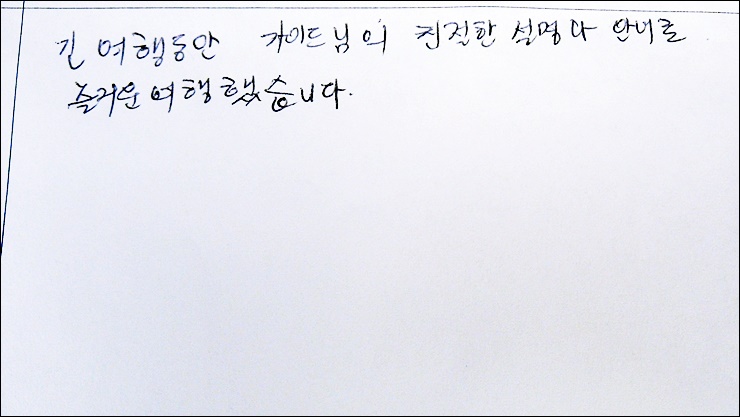 긴 여행동안 가이드님의 친절한 설명과 안내로
즐거운 여행 했습니다.